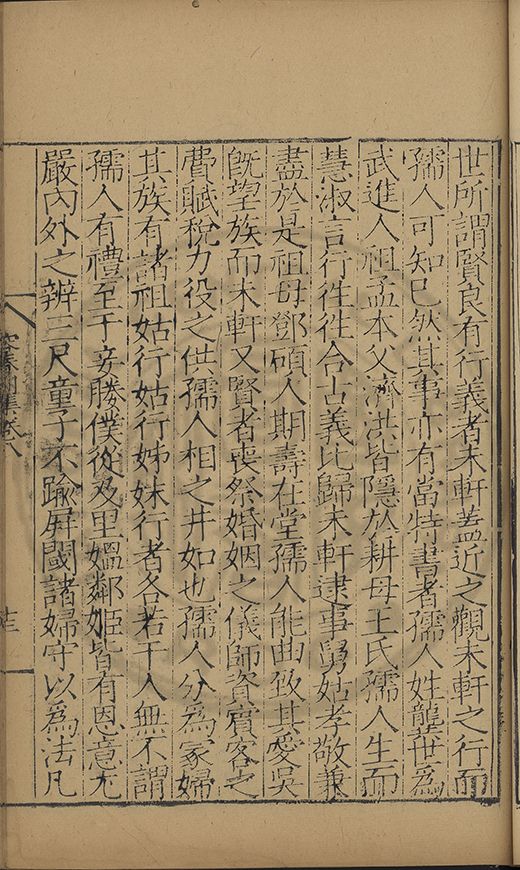 世所謂賢良有行義者未軒蓋近之觀未軒之行而
孺人可知已然其事亦有當特書者孺人姓龔世為
武進人祖孟本父濟洪皆隱於耕母王氏孺人生而
慧淑言行徃徃合古義比歸未軒逮事舅姑孝敬兼
盡於是祖母鄧碩人期壽在堂孺人能曲致其愛吳
旣望族而未軒又賢者喪祭婚姻之儀師資賓客之
費賦稅力役之供孺人相之井如也孺人分為冢婦
其族有諸祖姑行姑行姊妹行者各若干人無不謂
孺人有禮至于妾媵僕從及里媼鄰姬皆有恩意尤
嚴內外之辨三尺童子不踰屏閾諸婦守以為法凡